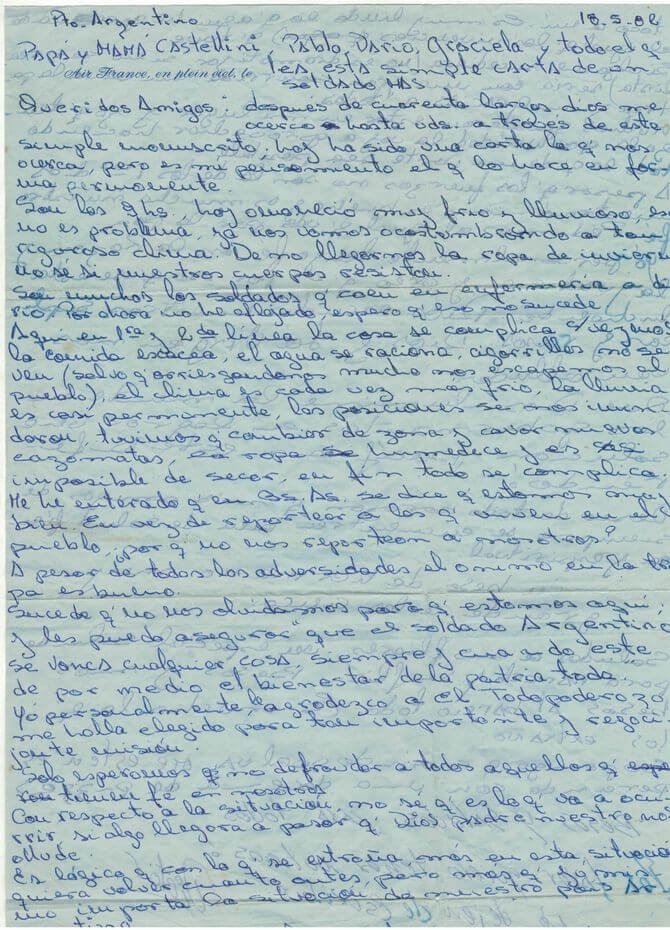 Pto. Argentino 18.5.82
PAPA y MAMÁ Castellini, Pablo, Dario, Graciela y todo el q'
Air France, en plein ciel, le
lea esta simple carta de un
soldado MAS
Queridos Amigos: después de cuarenta largos dias me
acerco hasta uds. a traves de este
simple manuscrito, hoy ha sido una carta la q' nos
acerca, pero es mi pensamiento el q' lo hace en for
ma permanente.
Son las 9 hs., hoy amaneció muy frio y lluvioso,
no es problema, ya nos vamos acostumbrando a tan
riguroso clima. De no llegarnos la ropa de invierno
no sé si nuestros cuerpos resistan.
Son muchos los soldados q' caen en enfermería a dia
rio. Por ahora no he aflojado, espero q' eso no suceda
Aquí en 1ra y 2da linea la cosa se complica c/vez mas
la comida escacea, el agua se raciona, cigarrillos no se
ven (salvo q' arriesgandonos mucho nos escapemos al
pueblo), el clima es cada vez más frio, la lluvia
es casi permanente, las posiciones se nos inun
daron, tuvimos q' cambiar de zona y cavar nuevas
cazamatas, la ropa se humedece y es
imposible de secar, en fin todo se complica,
Me he enterado q' en Bs. As. se dice q' estamos muy
bien. En vez de reportear a los q' viven en el
pueblo, ¿por q' no nos reportean a nosotros?
A pesar de todas las adversidades el animo en la tro
pa es bueno.
Sucede q' no nos olvidamos para q' estamos aquí,
y les puedo asegurar que el soldado Argentino
se banca cualquier cosa, siempre y cuando este
de por medio el bienestar de la patria toda.
Yo personalmente, agradezco a el Todopoderozo
me halla elegido para tan importante y regoci
jante misión.
Solo esperamos q' no defraudar a todos aquellos q'
ron tienen fe en nosotros
Con respecto a la situación, no se q' es lo q' va a ocu
rrir, si algo llegara a pasar q' Dios padre nuestro nos
ayude.
Es lógico q' con lo q' se extraña, más en esta situación
quiera volver cuanto antes, pero mas q' yo mis
mo importa la situación de nuestro pais Ar
tina